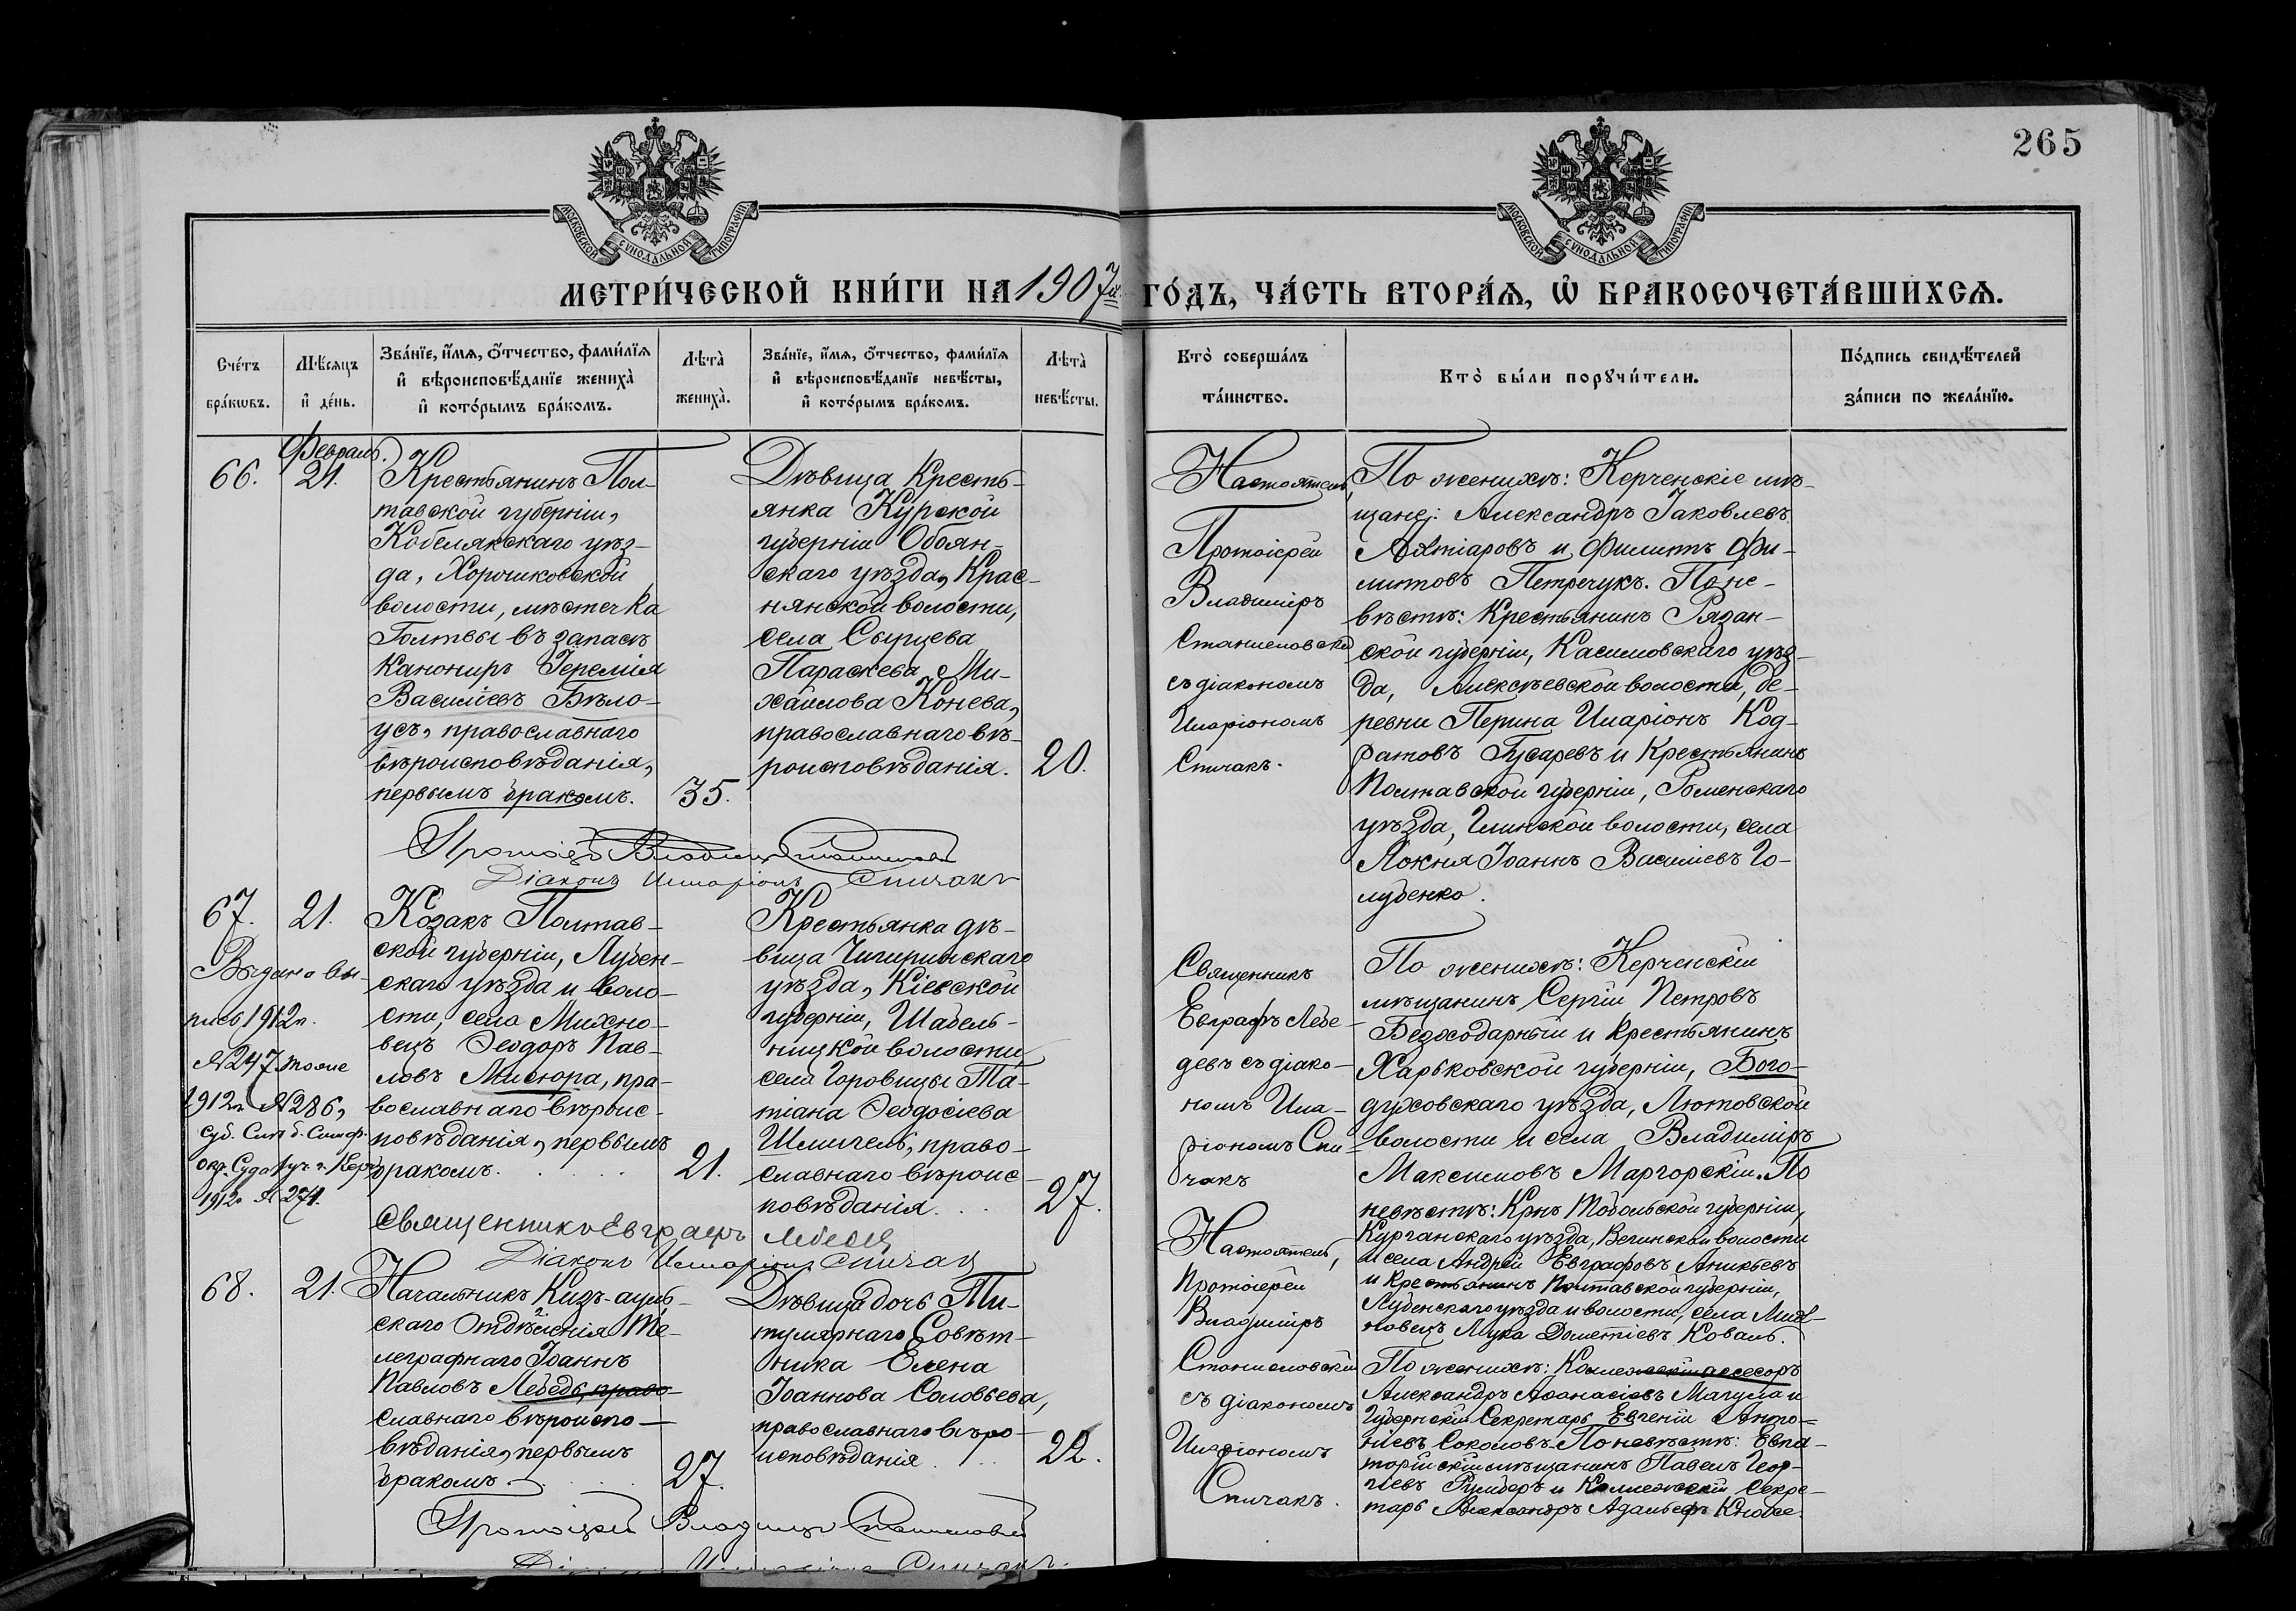 265
МОСКОВСКОЙ СѴНОДАЛЬНОЙ ТИПОГРАФІИ
МОСКОВСКОЙ СѴНОДАЛЬНОЙ ТИПОГРАФІИ
МЕТРИ́ЧЕСКОЙ КНИ́ГИ НА 1907й ГО́ДЪ, ЧА́СТЬ ВТОРА́Я, Ѡ БРАКОСОЧЕТА́ВШИХСЯ.
Сче́тъ бра́кωвъ.
Мѣ́сяцъ и де́нь.
Зва́нїе, и́мя, ѻ҆́тчество, фами́лїя
и вѣроисповѣ́данїе жениха̀
и кото́рымъ бра́комъ.
Лѣта̀ жениха̀.
Зва́нїе, и́мя, ѻ҆́тчество, фами́лїя
и вѣроисповѣ́данїе невѣ́сты,
и кото́рымъ бра́комъ.
Лѣта̀ невѣ́сты.
Кто̀ соверша́лъ та́инство.
Кто̀ бы́ли порꙋчи́тели.
По́дпись свидѣ́телей за́писи по жела́нїю.
Февраль.
66.
21.
Крестьянинъ Пол-
тавской губерніи,
Кобелякскаго уѣз-
да, Хорошковской
волости, мѣстечка
Голтвы въ запасѣ
Канониръ Іеремія
Василіевъ Бѣло-
усъ, православнаго
вѣроисповѣданія,
первымъ бракомъ.
35.
Дѣвица Кресть-
янка Курской
губерніи Обоян-
скаго уѣзда, Крас-
нянской волости,
села Сырцева
Параскева Ми-
хайлова Конева,
православнаго вѣ-
роисповѣданія.
20.
Настоятель,
Протоіерей
Владиміръ
Станиславскій
съ діакономъ
Иларіономъ
Спичакъ.
По женихѣ: Керченскіе мѣ-
щане: Александръ Іаковлевъ
Ахтіаровъ и Филиппъ Фи-
липповъ Петречукъ. По не-
вѣстѣ: Крестьянинъ Рязан-
ской губерніи, Касимовскаго уѣз-
да, Алексѣевской волости, де-
ревни Перина Иларіонъ Код-
ратовъ Гусаревъ и Крестьянинъ
Полтавской губерніи, Роменскаго
уѣзда, Глинской волости, села
Локня Іоаннъ Василіевъ Го-
лубенко.
Діаконъ Иларіонъ Спичакъ
67.
21.
Выдана вы-
пись 1912г.
№247 тоже
1912г. №286,
1912г № 274.
Козакъ Полтав-
ской губерніи, Лубен-
скаго уѣзда и воло-
сти, села Михно-
вецъ Ѳеодоръ Пав-
ловъ Мисюра, пра-
вославнаго вѣроис-
повѣданія, первымъ
бракомъ.
21.
Крестьянка дѣ-
вица Чигиринскаго
уѣзда, Кіевской
губерніи, Шабель-
ницкой волости,
села Боровицы Та-
тіана Ѳеодосіева
Шмигель, право-
славнаго вѣроис-
повѣданія.
27.
Священникъ
Евграфъ Лебе-
девъ съ діако-
номъ Ила-
ріономъ Спи-
чакъ
По женихѣ: Керченскій
мѣщанинъ Сергій Петровъ
Безхозарный и Крестьянинъ
Харьковской губерніи, Бого-
духовскаго уѣзда, Лютовской
волости и села Владиміръ
Максимовъ Маргорскій. По
невѣстѣ: Крнъ Тобольской губерніи,
Курганскаго уѣзда, волости
и села Андрей Евграфовъ Аникьевъ
и Крестьянинъ Полтавской губерніи,
Лубенскаго уѣзда и волости, села Мих-
новецъ Лука Дометіевъ Коваль.
Священникъ Евграфъ Лебедевъ
Діаконъ Иларіонъ Спичакъ
68.
21.
Начальникъ Кизъ-ауль-
скаго Отдѣленія Те-
леграфнаго Іоаннъ
Павловъ Лебедь, право-
славнаго вѣроиспо-
вѣданія, первымъ
бракомъ.
27.
Дѣвица дочь Ти-
тулярнаго Совѣт-
ника Елена
Іоаннова Соловьева,
православнаго вѣро-
исповѣданія.
22.
Настоятель,
Протоіерей
Владиміръ
Станиславскій
съ діакономъ
Иларіономъ
Спичакъ.
По женихѣ: Коллежскій ассесоръ
Александръ Аѳанасіевъ Магула и
Губернскій Секретарь Евгеній Анто-
ніевъ Соколовъ. По невѣстѣ: Евпа-
торійскій мѣщанинъ Павелъ Геор-
гіевъ и Коллежскій Секре-
тарь Александръ
Протоіерей Владиміръ Станиславскій
Діаконъ Иларіонъ Спичакъ.